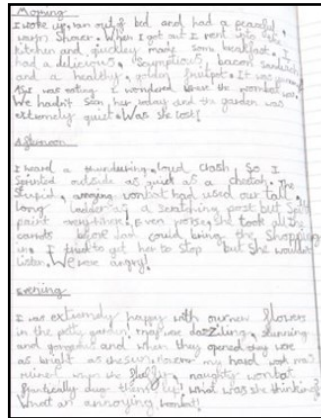 Morning
I woke up, ran out of bed and had a peaceful,
warm shower. When I got out I went into the
kitchen and quickley made some breakfast. I
had a delicious, scrumptious, bacon sandwich
and a healthy, golden fruitpot. It was yummy
As I was eating I wondered where the wombat was.
We hadn't seen her today and the garden was
extremely quiet. Was she lost!
Afternoon
I heard a thundering, loud crash so I
sprinted outside as quiet as a cheetah. The
stupid, annoying wombat had used our tall,
long ladder as a scratching post but spilt
paint everywhere. Even worse, she took all the
carrots before Dad could bring the shopping
in. I tried to get her to stop but she wouldn't
listen. We were angry!
Evening
I was extremely happy with our new flowers
in the potty garden. They were dazzling, stunning
and gorgeous and when they opened they were
as bright as the sun. However my hard work was
ruined when the naughty wombat
frantically dug them up! What was she thinking
What an annoying wombat!